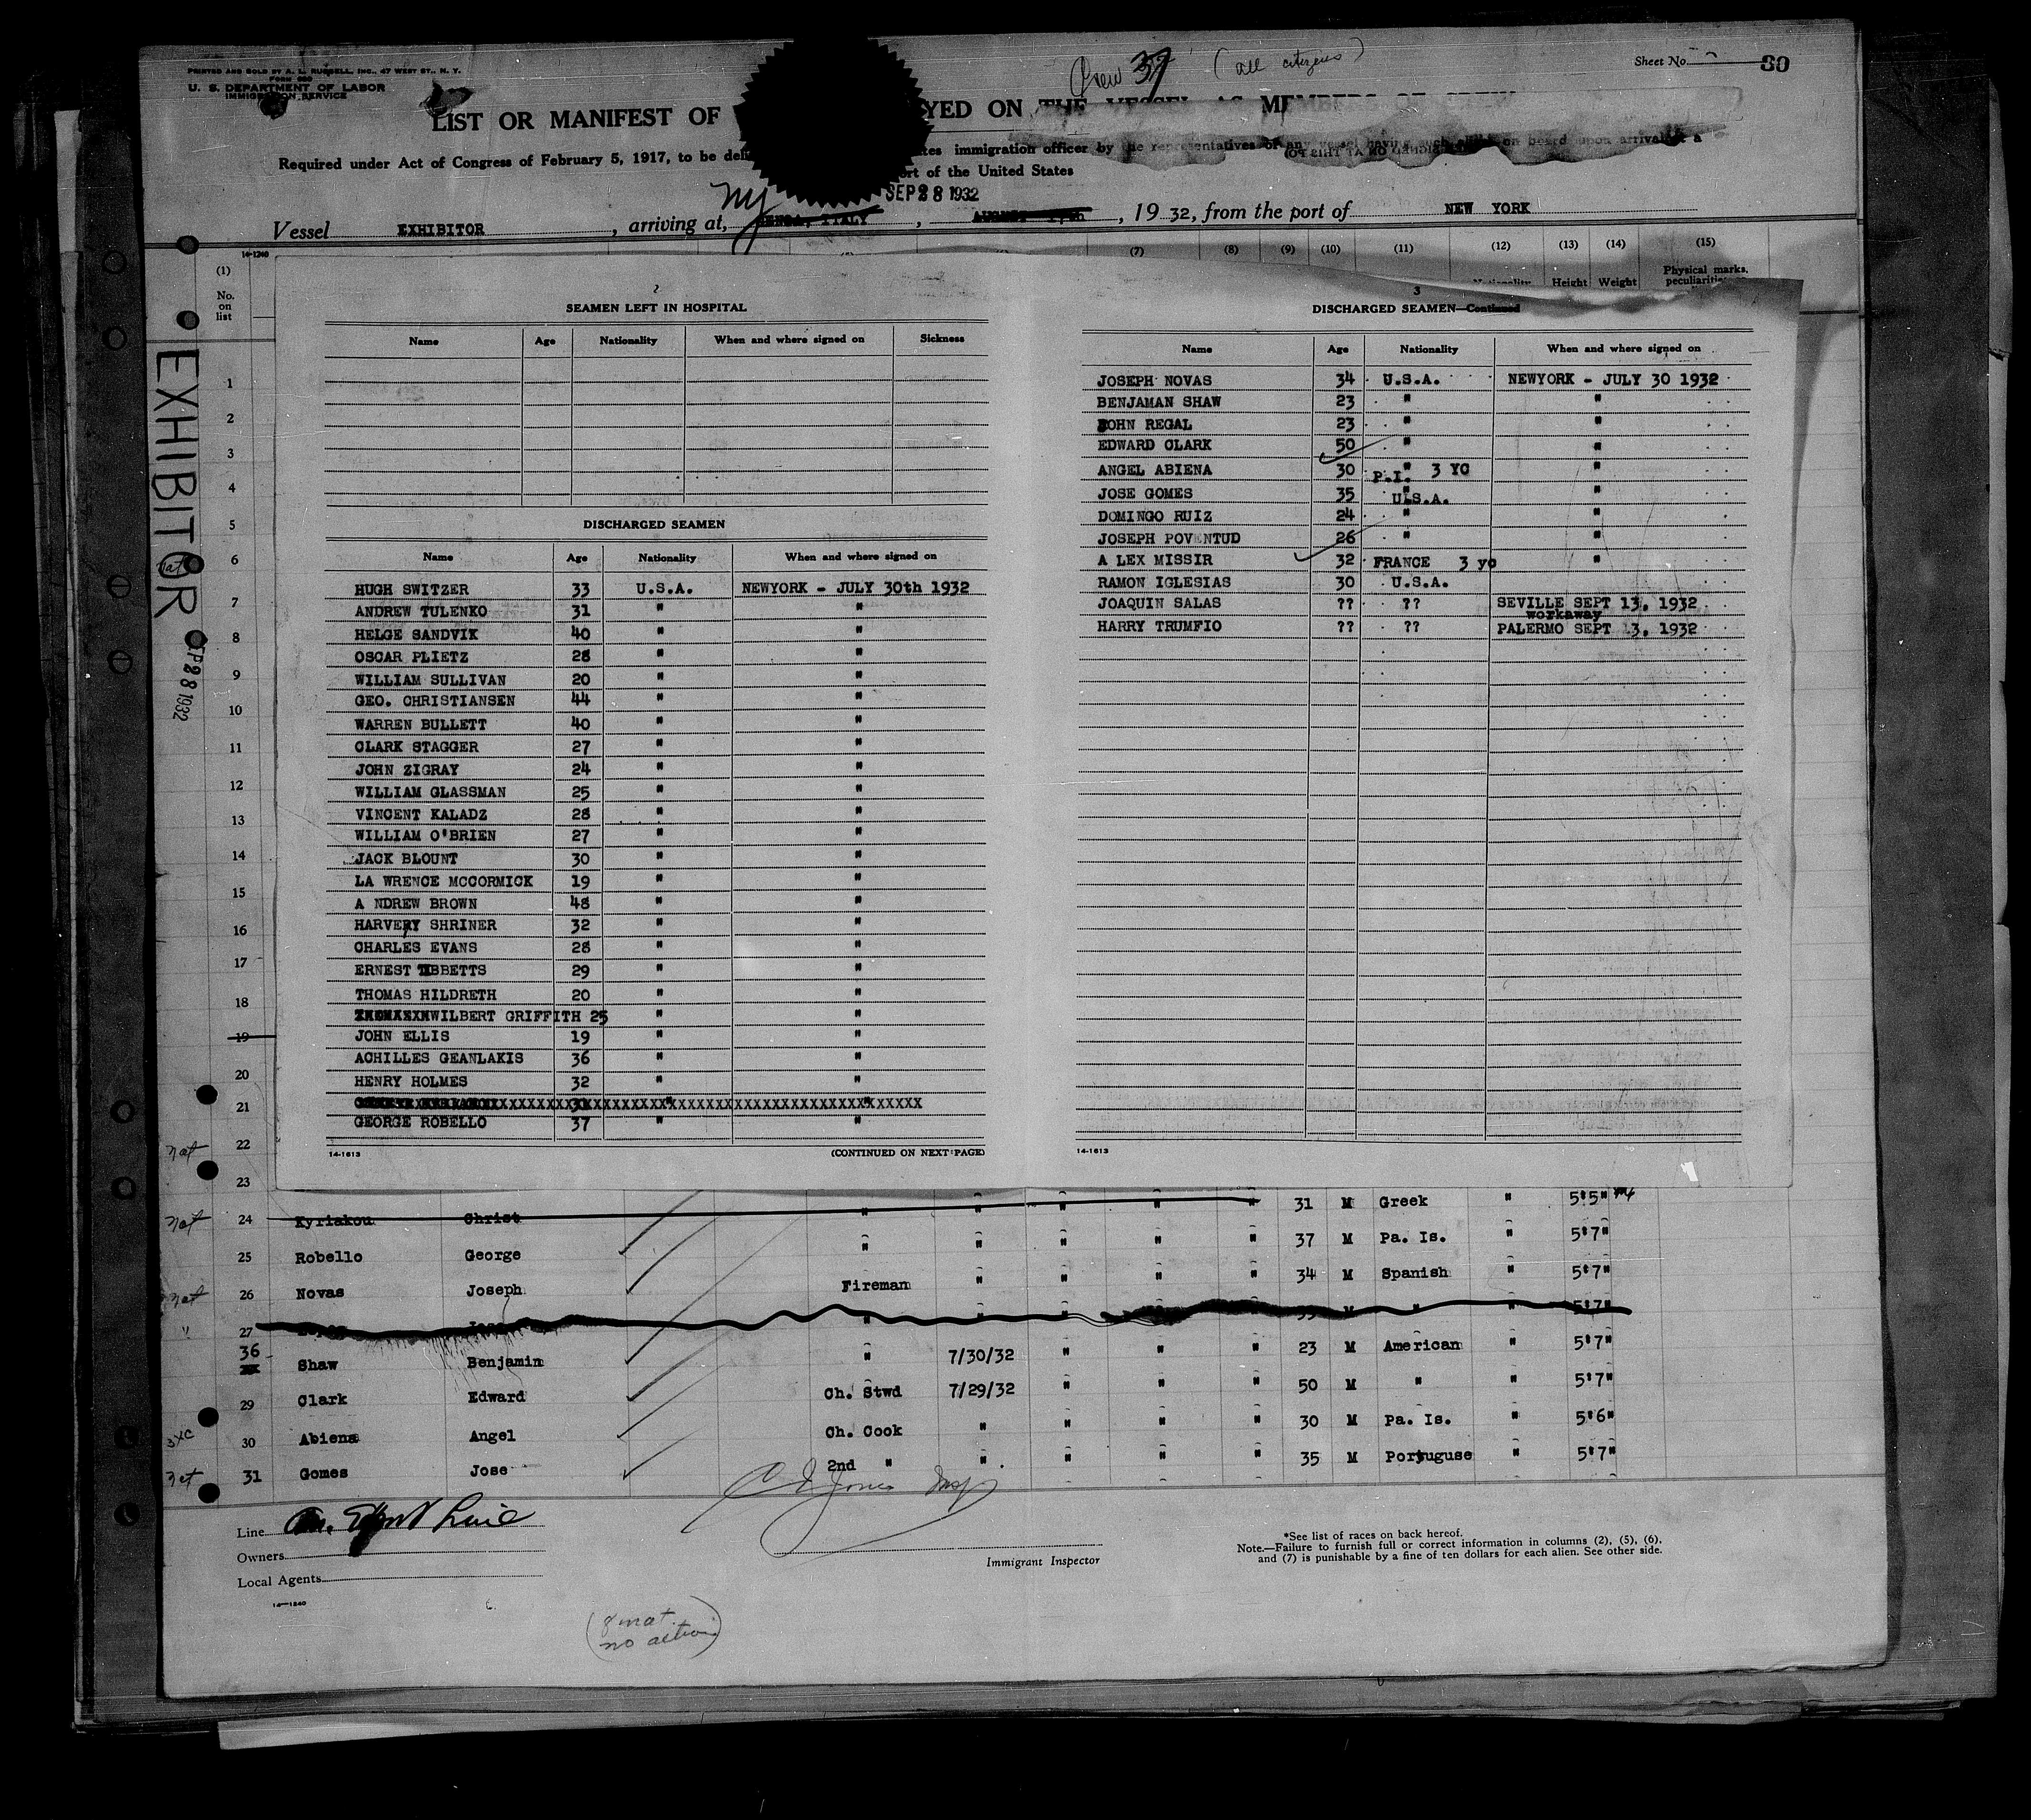 PRINTED AND SOLD BY A. L. RUSSELL, INC., 47 WEST ST., N. Y.
U. S. DEPARTMENT OF LABOR
IMMIGRATION SERVICE
Crew 37 (all citizens)
Sheet No. 80
LIST OR MANIFEST OF YED ON THE VESSEL AS MEMBERS OF CREW
Required under Act of Congress of February 5, 1917, to be deli tes immigration officer by the representatives of any vessel having such on board upon arrival at a
ort of the United States
NY SEP 28 1932
Vessel EXHIBITOR , arriving at, ITALY , AUGUST 17th , 19 32, from the port of NEW YORK
14-1240
(1) (7) (8) (9) (10) (11) (12) (13) (14) (15)
No. on list
Nationality Height Weight Physical marks, peculiarities
EXHIBITOR
SEP 28 1932
2
SEAMEN LEFT IN HOSPITAL
Name Age Nationality When and where signed on Sickness
DISCHARGED SEAMEN
Name Age Nationality When and where signed on
HUGH SWITZER 33 U.S.A. NEWYORK - JULY 30th 1932
ANDREW TULENKO 31 " "
HELGE SANDVIK 40 " "
OSCAR PLIETZ 28 " "
WILLIAM SULLIVAN 20 " "
GEO. CHRISTIANSEN 44 " "
WARREN BULLETT 40 " "
CLARK STAGGER 27 " "
JOHN ZIGRAY 24 " "
WILLIAM GLASSMAN 25 " "
VINCENT KALADZ 28 " "
WILLIAM O'BRIEN 27 " "
JACK BLOUNT 30 " "
LA WRENCE MCCORMICK 19 " "
A NDREW BROWN 48 " "
HARVEY SHRINER 32 " "
CHARLES EVANS 28 " "
ERNEST TIBBETTS 29 " "
THOMAS HILDRETH 20 " "
WILBERT GRIFFITH 25 " "
JOHN ELLIS 19 " "
ACHILLES GEANLAKIS 36 " "
HENRY HOLMES 32 " "
GEORGE ROBELLO 37 " "
14-1613 (CONTINUED ON NEXT PAGE)
3
DISCHARGED SEAMEN—Continued
Name Age Nationality When and where signed on
JOSEPH NOVAS 34 U.S.A. NEWYORK - JULY 30 1932
BENJAMAN SHAW 23 " "
JOHN REGAL 23 " "
EDWARD CLARK 50 " "
ANGEL ABIENA 30 P.I. " 3 YO "
JOSE GOMES 35 " U.S.A. "
DOMINGO RUIZ 24 " "
JOSEPH POVENTUD 26 " "
A LEX MISSIR 32 FRANCE 3 yo "
RAMON IGLESIAS 30 U.S.A.
JOAQUIN SALAS ?? ?? SEVILLE SEPT 13, 1932
workaway
HARRY TRUMFIO ?? ?? PALERMO SEPT 13, 1932
14-1613
1
2
3
4
5
nat 6
7
8
9
10
11
12
13
14
15
16
17
18
19
20
21
nat 22
23 31 M Greek " 5'5"
nat 24 Kyriakou Christ " " " " "
25 Robello George " " " " " 37 M Pa. Is. " 5'7"
nat 26 Novas Joseph Fireman " " " " 34 M Spanish " 5'7"
" 27 " " M " " 5'7"
36 Shaw Benjamin " 7/30/32 " " " 23 M American " 5'7"
29 Clark Edward Ch. Stwd 7/29/32 " " " 50 M " " 5'7"
30 Abiena Angel Ch. Cook " " " " 30 M Pa. Is. " 5'6"
nat 31 Gomes Jose 2nd " " " " " 35 M Portuguse " 5'7"
Line Am. Export Line
Owners
Local Agents
14-1240
Jones Insp
Immigrant Inspector
*See list of races on back hereof.
Note.—Failure to furnish full or correct information in columns (2), (5), (6),
and (7) is punishable by a fine of ten dollars for each alien. See other side.
(8 nat.
no action)